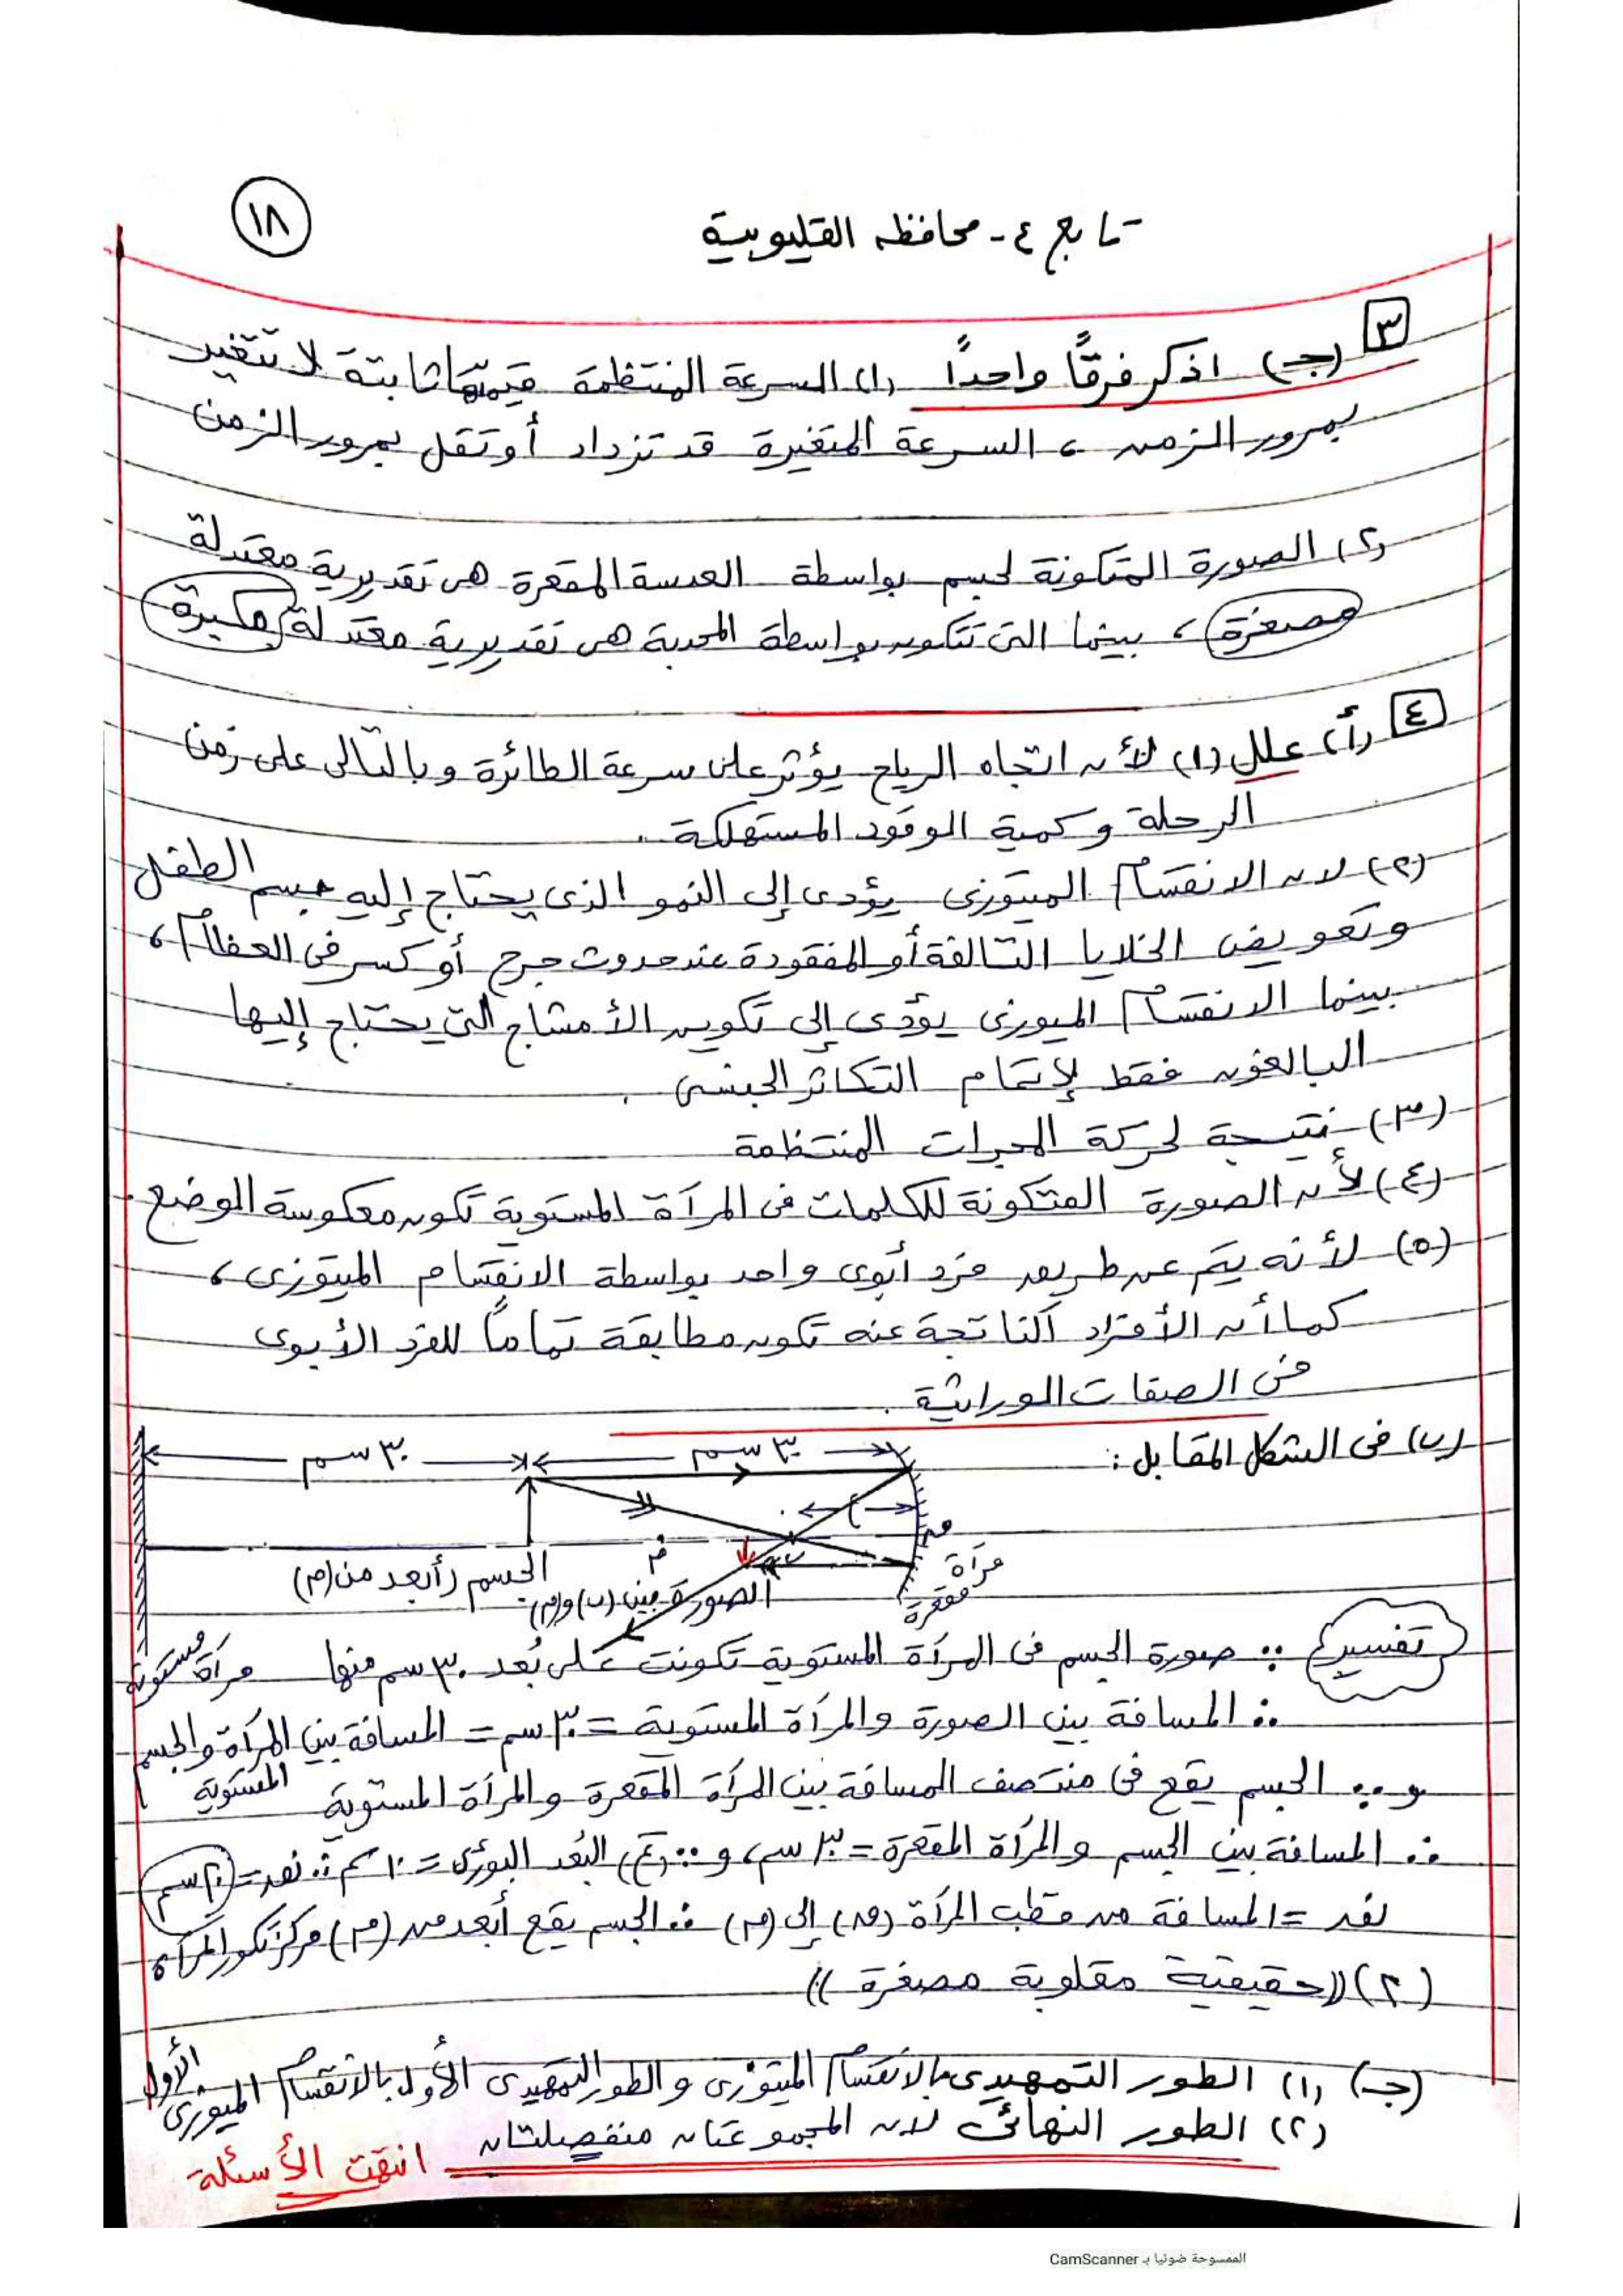 ١٨
تابع ٤- محافظه القليوبية
٣ (جـ) اذكر فرقًا واحدًا (١) السرعة المنتظمة قيمتها ثابتة لا تتغير
بمرور الزمن ، السرعة المتغيرة قد تزداد أو تقل بمرور الزمن
(٢) الصورة المتكونة لجسم بواسطة العدسة المقعرة هى تقديرية معتدلة
مصغرة ، بينما التى تتكون بواسطة المحدبة هى تقديرية معتدلة مكبرة
٤ (أ) علل (١) لأن اتجاه الرياح يؤثر على سرعة الطائرة وبالتالى على زمن
الرحلة وكمية الوقود المستهلكة .
(٢) لان الانقسام الميتوزى يؤدى إلى النمو الذى يحتاج إليه جسم الطفل
وتعويض الخلايا التالفة أو المفقودة عند حدوث جرح أو كسر فى العظام ،
بينما الانقسام الميوزى يؤدى إلى تكوين الأمشاج التى يحتاج إليها
البالغون فقط لإتمام التكاثر الجنسى .
(٣) نتيجة لحركة المجرات المنتظمة
(٤) لأن الصورة المتكونة للكلمات فى المرآة المستوية تكون معكوسة الوضع .
(٥) لأنه يتم عن طريق فرد أبوى واحد بواسطة الانقسام الميتوزى ،
كما أن الأفراد الناتجة عنه تكون مطابقة تمامًا للفرد الأبوى
فى الصفات الوراثية .
(ب) فى الشكل المقابل :
٣٠ سم
٣٠ سم
ق
م
ب
مرآة مقعرة
الجسم (أبعد من (م)
الصورة بين (ب) و(م)
مرآة مستوية
تفسير ∵ صورة الجسم فى المرآة المستوية تكونت على بُعد ٣٠ سم منها
∴ المسافة بين الصورة والمرآة المستوية = ٣٠ سم = المسافة بين المرآة والجسم
المستوية
و ∵ الجسم يقع فى منتصف المسافة بين المرآة المقعرة والمرآة المستوية
∴ المسافة بين الجسم والمرآة المقعرة = ٣٠ سم، و ∵ (ع) البُعد البؤرى = ١٠ سم ∴ نق = ٢٠ سم
نق = المسافة من قطب المرآة (ق) إلى (م) ∴ الجسم يقع أبعد من (م) مركز تكور المرآة
(٢) ((حقيقية مقلوبة مصغرة))
(جـ) (١) الطور التمهيدى بالانقسام الميتوزى والطور التمهيدى الأول بالانقسام الميوزى الأول
(٢) الطور النهائى لان المجموعتان منفصلتان
انتهت الأسئلة
الممسوحة ضوئيا بـ CamScanner